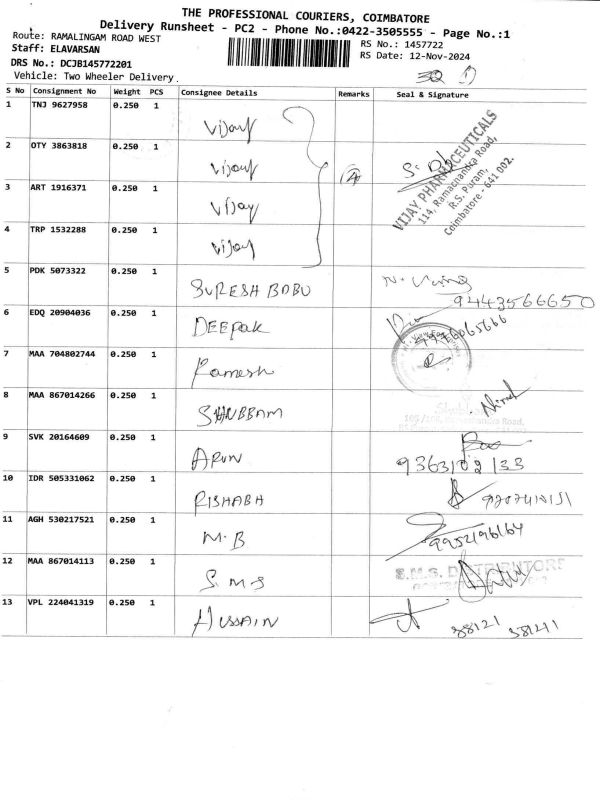 THE PROFESSIONAL COURIERS, COIMBATORE
Delivery Runsheet - PC2 - Phone No.:0422-3505555 - Page No.:1
Route: RAMALINGAM ROAD WEST
RS No.: 1457722
Staff: ELAVARSAN
RS Date: 12-Nov-2024
DRS No.: DCJB145772201
Vehicle: Two Wheeler Delivery.
S No Consignment No Weight PCS Consignee Details Remarks Seal & Signature
1 TNJ 9627958 0.250 1 Vijay
2 OTY 3863818 0.250 1 Vijay 4
3 ART 1916371 0.250 1 Vijay
4 TRP 1532288 0.250 1 Vijay
VIJAY PHARMACEUTICALS
114, Ramachandra Road,
R.S. Puram,
Coimbatore - 641 002.
5 PDK 5073322 0.250 1 SURESH BABU
9443566650
6 EDQ 20904036 0.250 1 DEEPAK
7 MAA 704802744 0.250 1 Ramesh
8 MAA 867014266 0.250 1 SHUBBAM
9 SVK 20164609 0.250 1 ARUN
9363102133
10 IDR 505331062 0.250 1 RISHABH
11 AGH 530217521 0.250 1 M.B
9952196164
12 MAA 867014113 0.250 1 S.M.S
S.M.S. DISTRIBUTORS
13 VPL 224041319 0.250 1 HUSSAIN